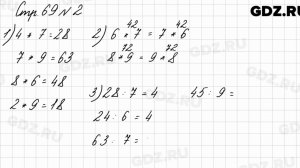 GDZ.RU
Стр. 69 N 2
1) 4 * 7 = 28
7 * 9 = 63
8 * 6 = 48
2 * 9 = 18
2) 6 * 7 = 7 * 6
42 42
8 * 9 = 9 * 8
72 72
3) 28 : 7 = 4
24 : 6 = 4
63 : 7 =
45 : 9 =
GDZ.RU